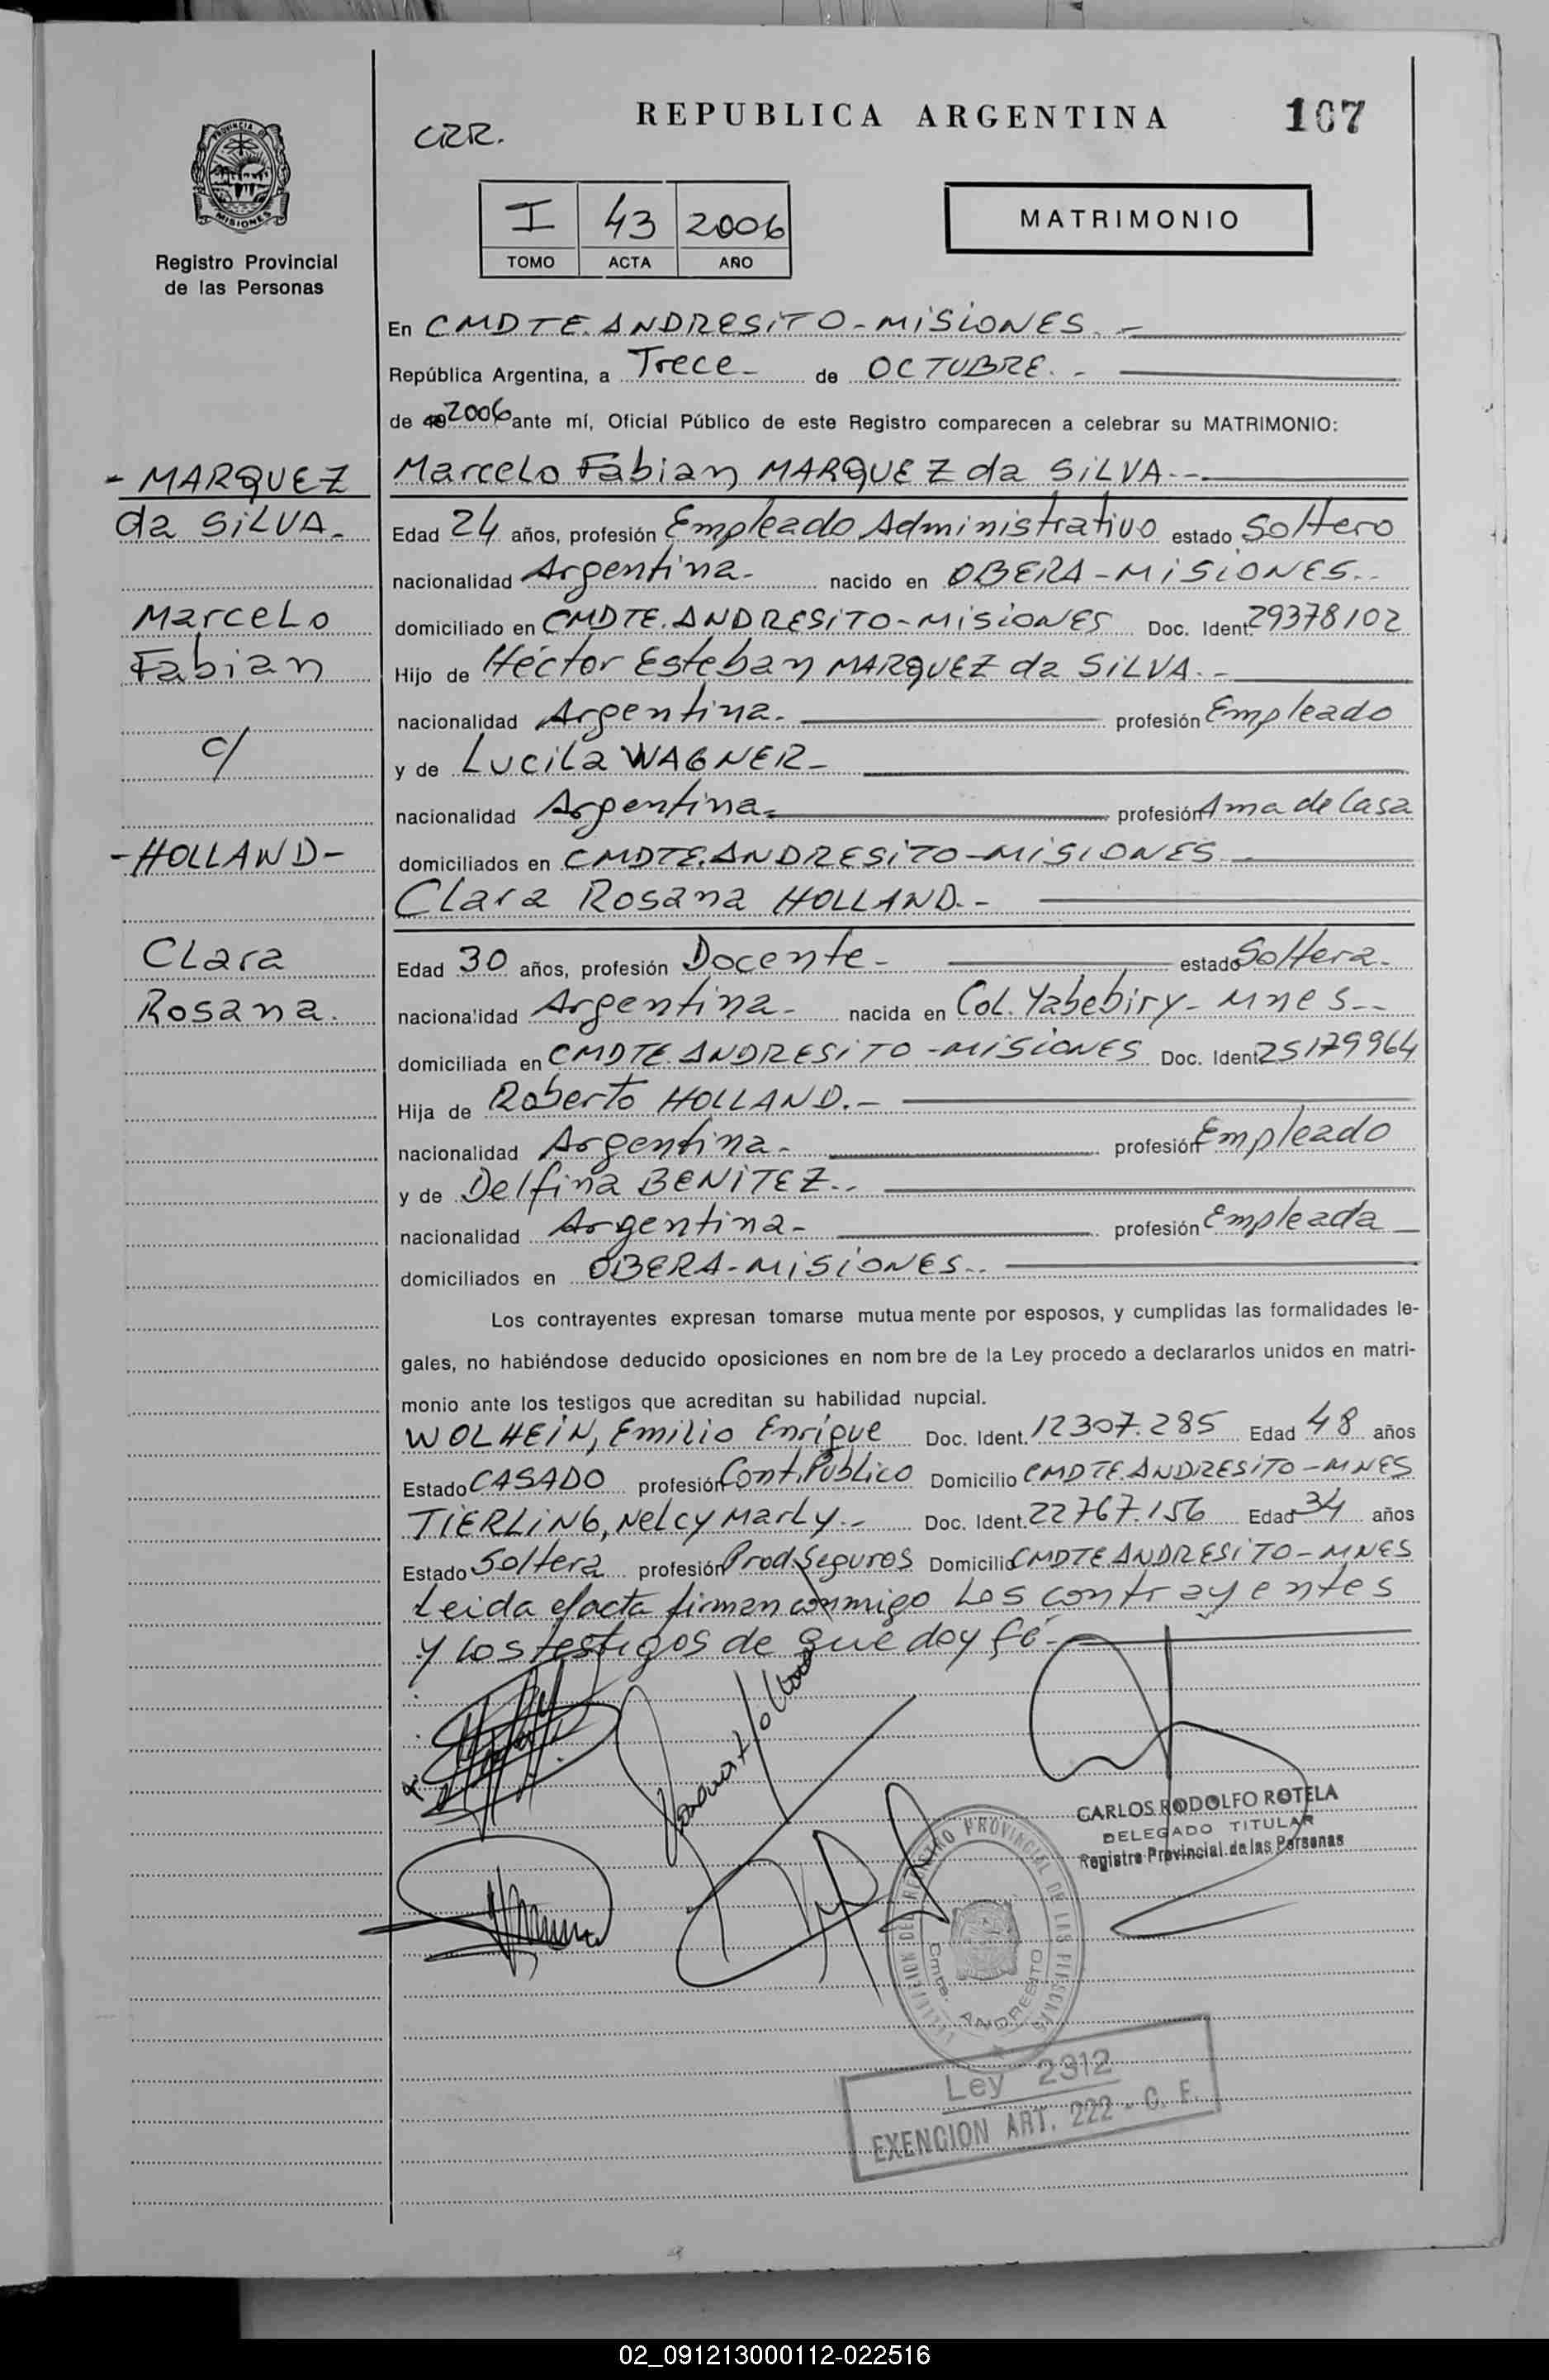 REPUBLICA ARGENTINA
107
CRR.
PROVINCIA DE
MISIONES
Registro Provincial
de las Personas
I 43 2006
TOMO ACTA AÑO
MATRIMONIO
En CMDTE. ANDRESITO - MISIONES. -
República Argentina, a Trece - de OCTUBRE. -
de 19 2006 ante mí, Oficial Público de este Registro comparecen a celebrar su MATRIMONIO:
- MARQUEZ
da SILVA -
Marcelo
Fabian
c/
- HOLLAND -
Clara
Rosana.
Marcelo Fabian MARQUEZ da SILVA. -
Edad 24 años, profesión Empleado Administrativo estado Soltero
nacionalidad Argentina - nacido en OBERA - MISIONES. -
domiciliado en CMDTE. ANDRESITO - MISIONES Doc. Ident. 29378102
Hijo de Héctor Esteban MARQUEZ da SILVA. -
nacionalidad Argentina. - profesión Empleado
y de Lucila WAGNER -
nacionalidad Argentina - profesión Ama de Casa
domiciliados en CMDTE. ANDRESITO - MISIONES -
Clara Rosana HOLLAND. -
Edad 30 años, profesión Docente - estado Soltera -
nacionalidad Argentina - nacida en Col. Yabebiry - Mnes -
domiciliada en CMDTE. ANDRESITO - MISIONES Doc. Ident. 25179964
Hija de Roberto HOLLAND. -
nacionalidad Argentina - profesión Empleado
y de Delfina BENITEZ. -
nacionalidad Argentina - profesión Empleada
domiciliados en OBERA - MISIONES. -
Los contrayentes expresan tomarse mutua mente por esposos, y cumplidas las formalidades le-
gales, no habiéndose deducido oposiciones en nom bre de la Ley procedo a declararlos unidos en matri-
monio ante los testigos que acreditan su habilidad nupcial.
WOLHEIN, Emilio Enrique Doc. Ident. 12307.285 Edad 48 años
Estado CASADO profesión Cont. Público Domicilio CMDTE. ANDRESITO - MNES
TIERLING, Nelcy Marly - Doc. Ident. 22767.156 Edad 34 años
Estado Soltera profesión Prod. Seguros Domicilio CMDTE ANDRESITO - MNES
Leida el acta firman conmigo Los contrayentes
y Los testigos de que doy fé -
CARLOS RODOLFO ROTELA
DELEGADO TITULAR
Registro Provincial de las Personas
REGISTRO PROVINCIAL DE LAS PERSONAS
Cmte. ANDRESITO
Ley 2312
EXENCION ART. 222 - C. F.
02_091213000112-022516